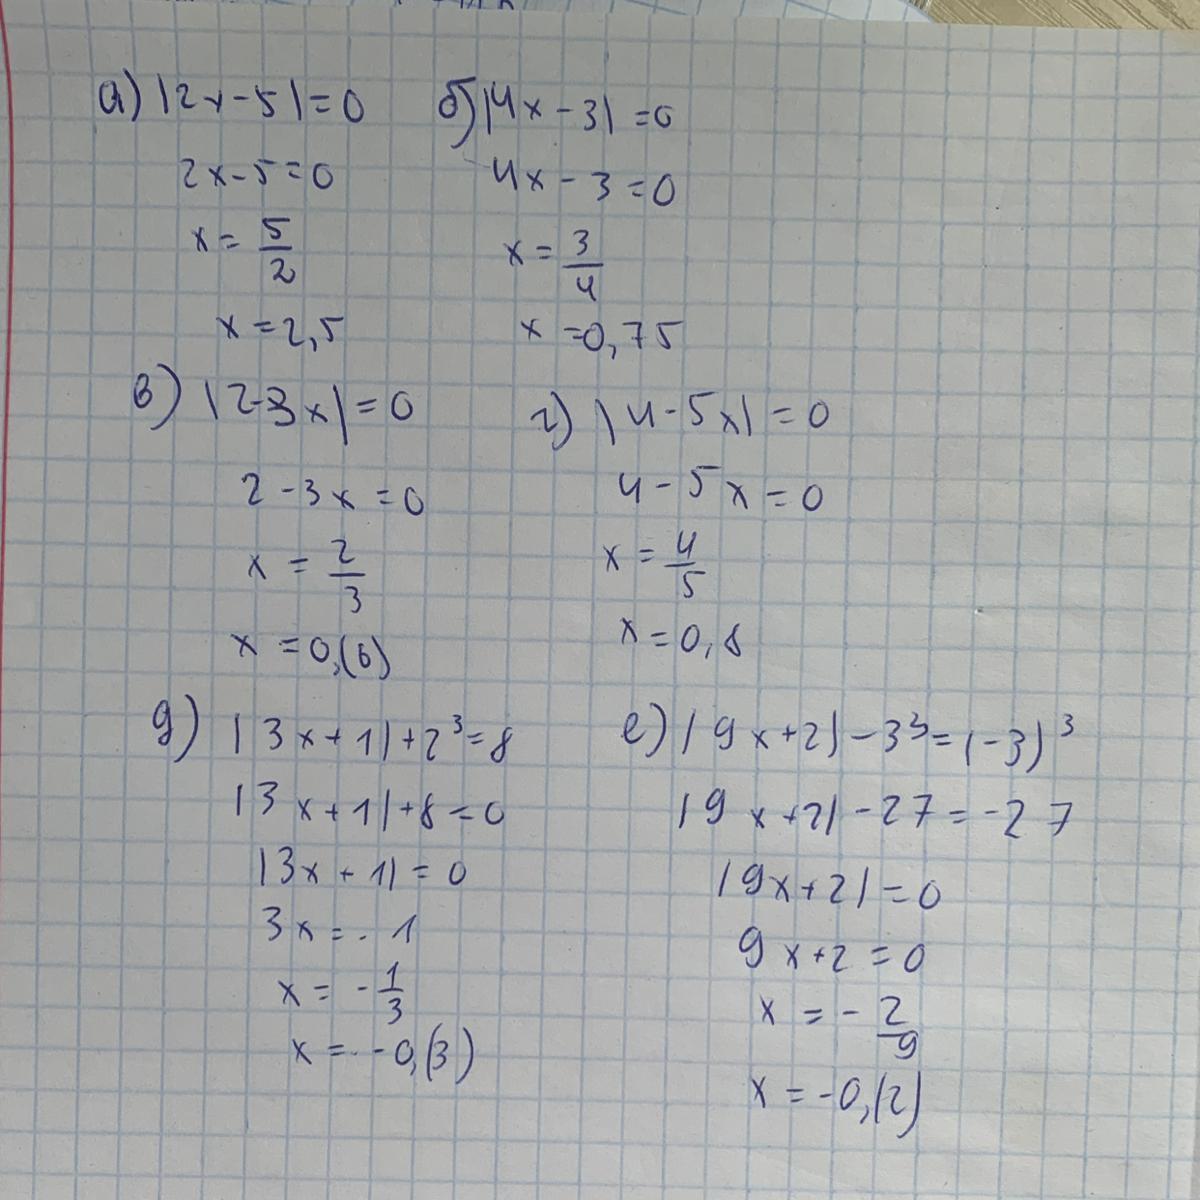 а) |2x-5|=0
2x-5=0
x=5/2
x=2,5
б) |4x-3|=0
4x-3=0
x=3/4
x=0,75
в) |2-3x|=0
2-3x=0
x=2/3
x=0,(6)
г) |4-5x|=0
4-5x=0
x=4/5
x=0,8
д) |3x+1|+2³=8
|3x+1|+8=0
|3x+1|=0
3x=-1
x=-1/3
x=-0,(3)
е) |9x+2|-3³=(-3)³
|9x+2|-27=-27
|9x+2|=0
9x+2=0
x=-2/9
x=-0,(2)